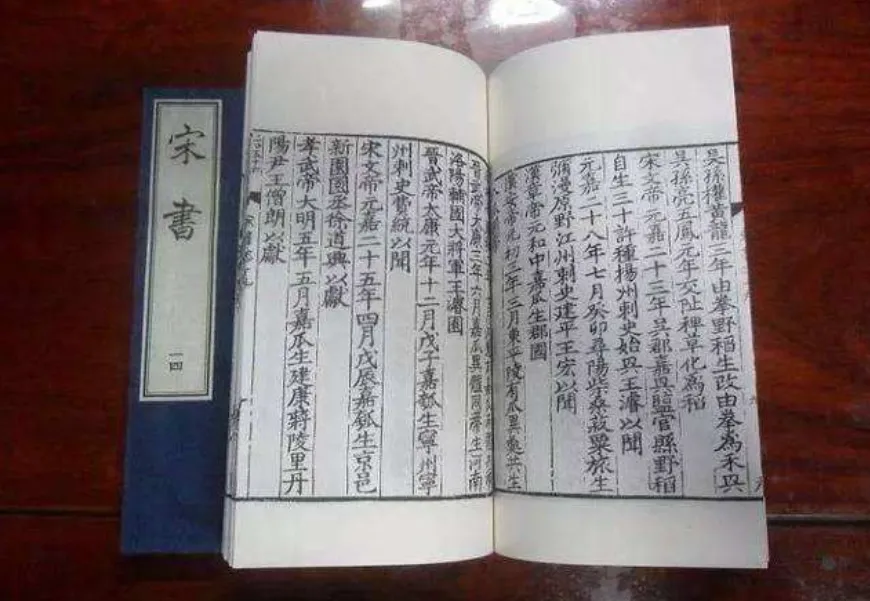 宋書
一四
吳孫權黃龍三年由拳野稻生改由拳為禾興
吳孫亮五鳳元年交阯稗草化為稻
宋文帝元嘉二十三年吳郡嘉興監官縣野稻
自生三十許種揚州刺史始興王濬以聞
元嘉二十八年七月癸卯尋陽柴桑菽粟旅生
彌漫原野江州刺史建平王宏以聞
漢章帝元和中嘉瓜生郡國
漢安帝元初三年三月東平陵有瓜異處共生
晉武帝太康三年六月嘉瓜異體同蔕生河南
洛陽輔國大將軍王濬園
晉武帝太康元年十二月戊子嘉瓠生寧州寧
州刺史費統以聞
宋文帝元嘉二十五年四月戊辰嘉瓠生京邑
新園園丞徐道興以獻
孝武帝大明五年五月嘉瓜生建康蔣陵里丹
陽尹王僧朗以獻